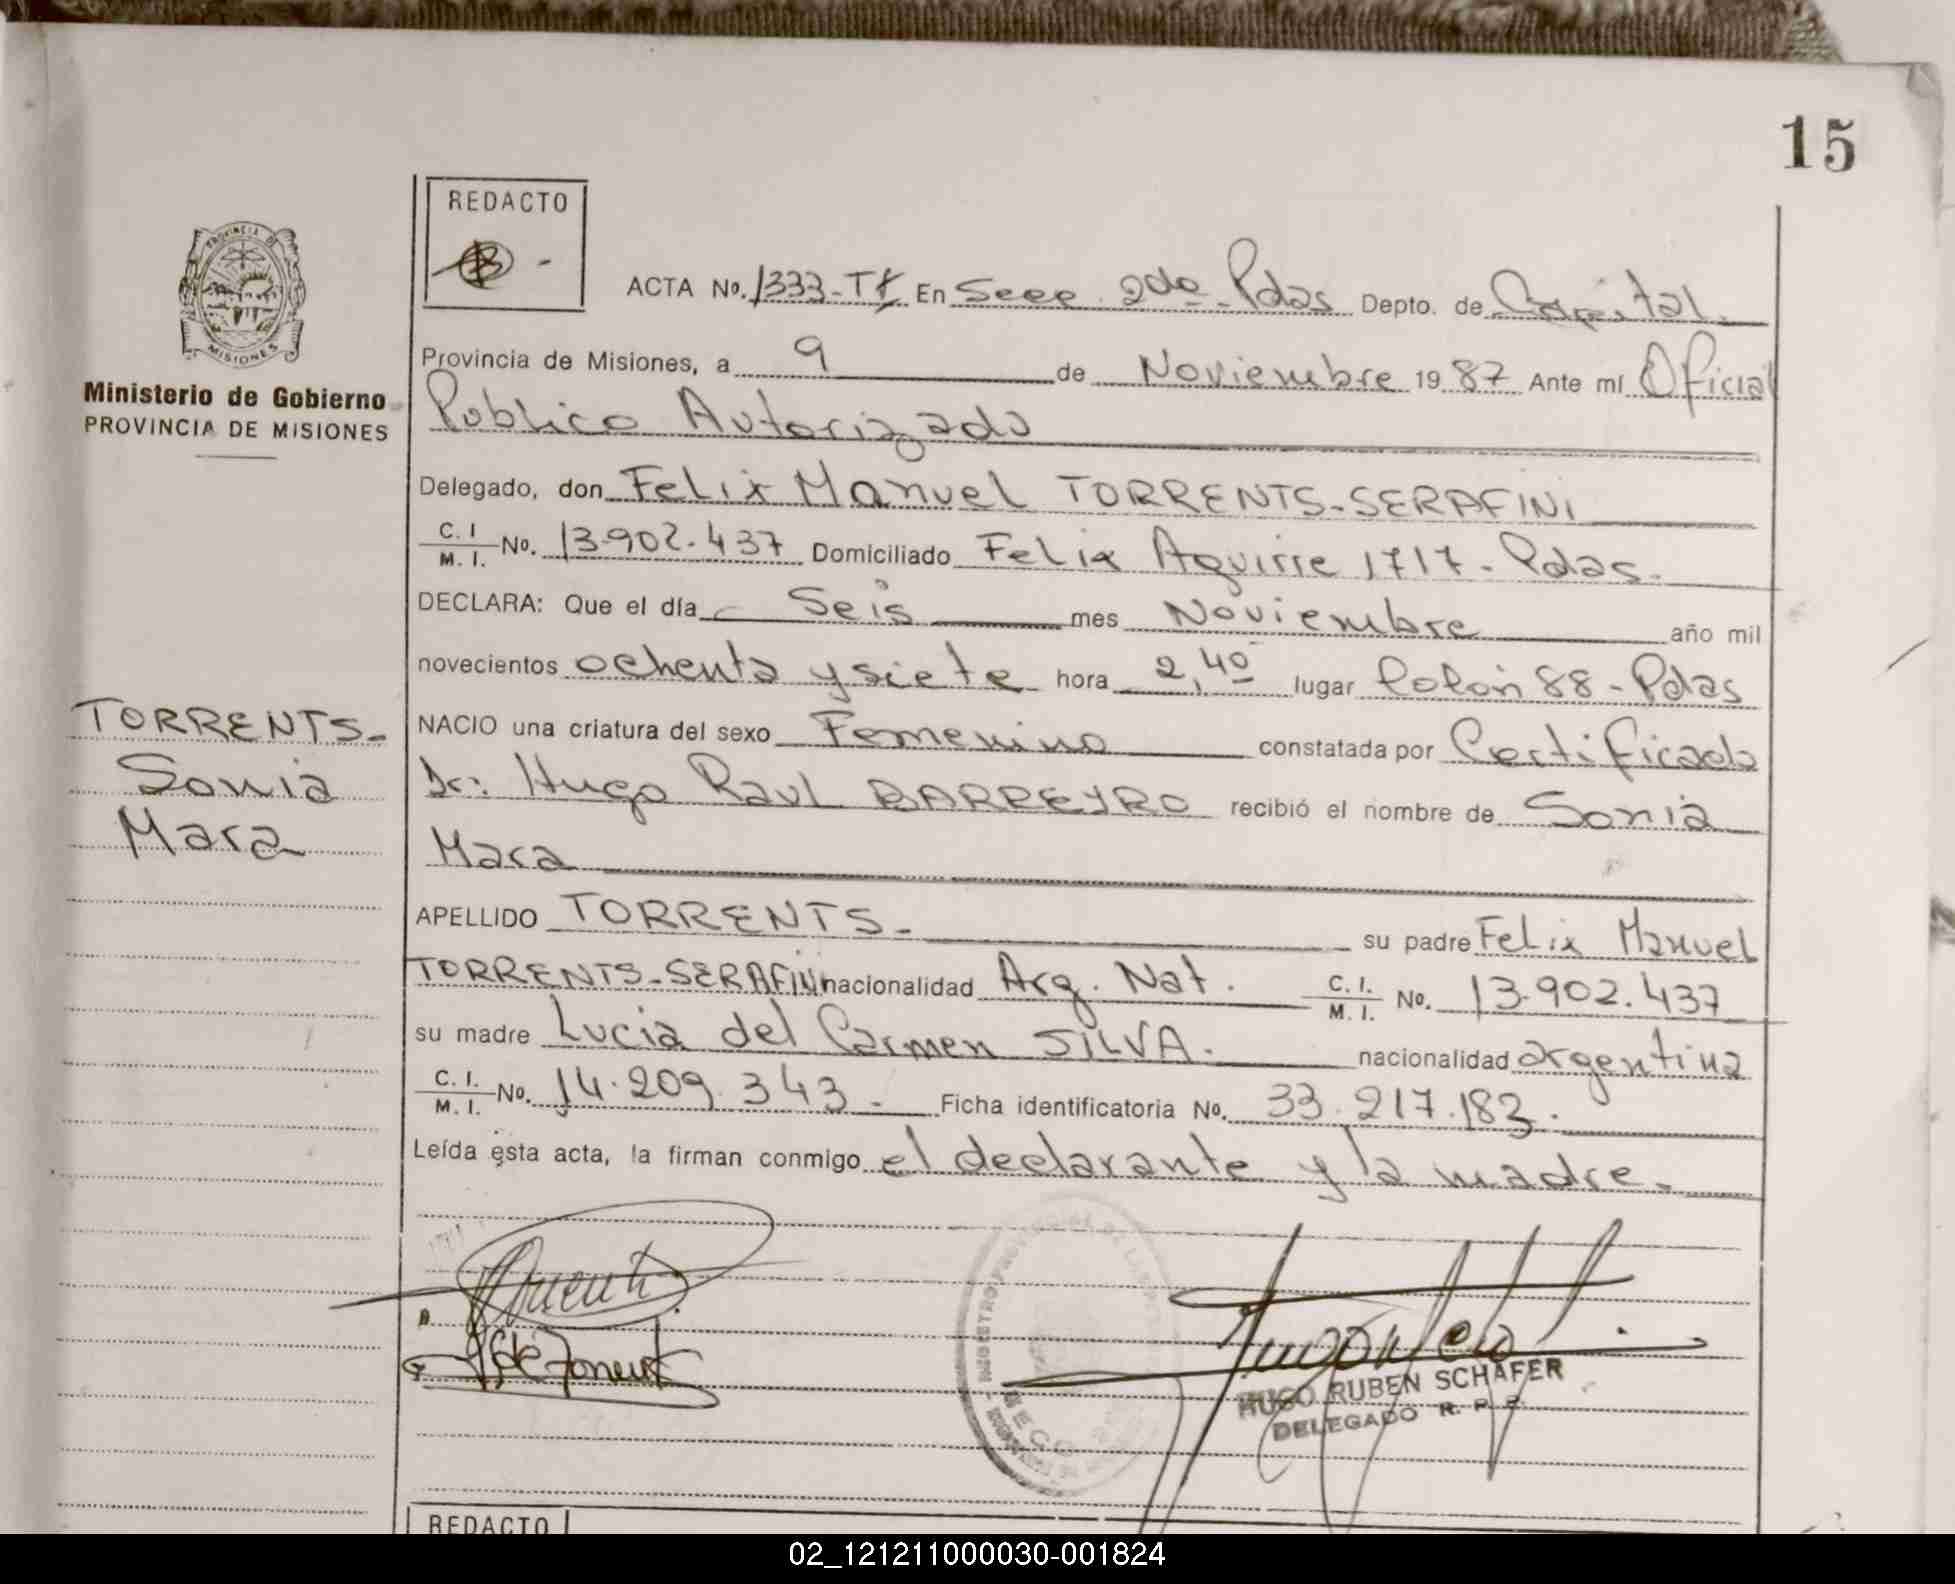 15
REDACTO
PROVINCIA DE
MISIONES
Ministerio de Gobierno
PROVINCIA DE MISIONES
ACTA No. 1333-T En Secc 2da Pdas Depto. de Capital
Provincia de Misiones, a 9 de Noviembre 19 87 Ante mí Oficial
Publico Autorizado
Delegado, don Felix Manuel TORRENTS-SERAFINI
C. I
M. I. No. 13.902.437 Domiciliado Felix Aguirre 1717-Pdas.
DECLARA: Que el día Seis mes Noviembre año mil
novecientos ochenta y siete hora 2,40 lugar Colón 88-Pdas
NACIO una criatura del sexo Femenino constatada por Certificado
Dr: Hugo Raul BARREYRO recibió el nombre de Sonia
Mara
TORRENTS-
Sonia
Mara
APELLIDO TORRENTS- su padre Felix Manuel
TORRENTS-SERAFINI nacionalidad Arg. Nat. C. I.
M. I. No. 13.902.437
su madre Lucia del Carmen SILVA. nacionalidad argentina
C. I.
M. I. No. 14.209.343.- Ficha identificatoria No. 33.217.183.
Leída esta acta, la firman conmigo el declarante y la madre.
HUGO RUBEN SCHAFER
DELEGADO R. P. P.
REDACTO
02_121211000030-001824